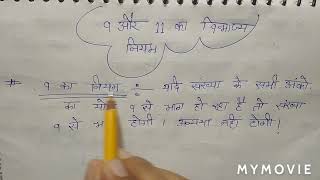 9 और 11 का विभाज्य
नियम
* 9 का नियम : यदि संख्या के सभी अंको
का योग 9 से भाग हो रहा है तो संख्या
9 से होगी। अन्यथा नहीं होगी।
MYMOVIE